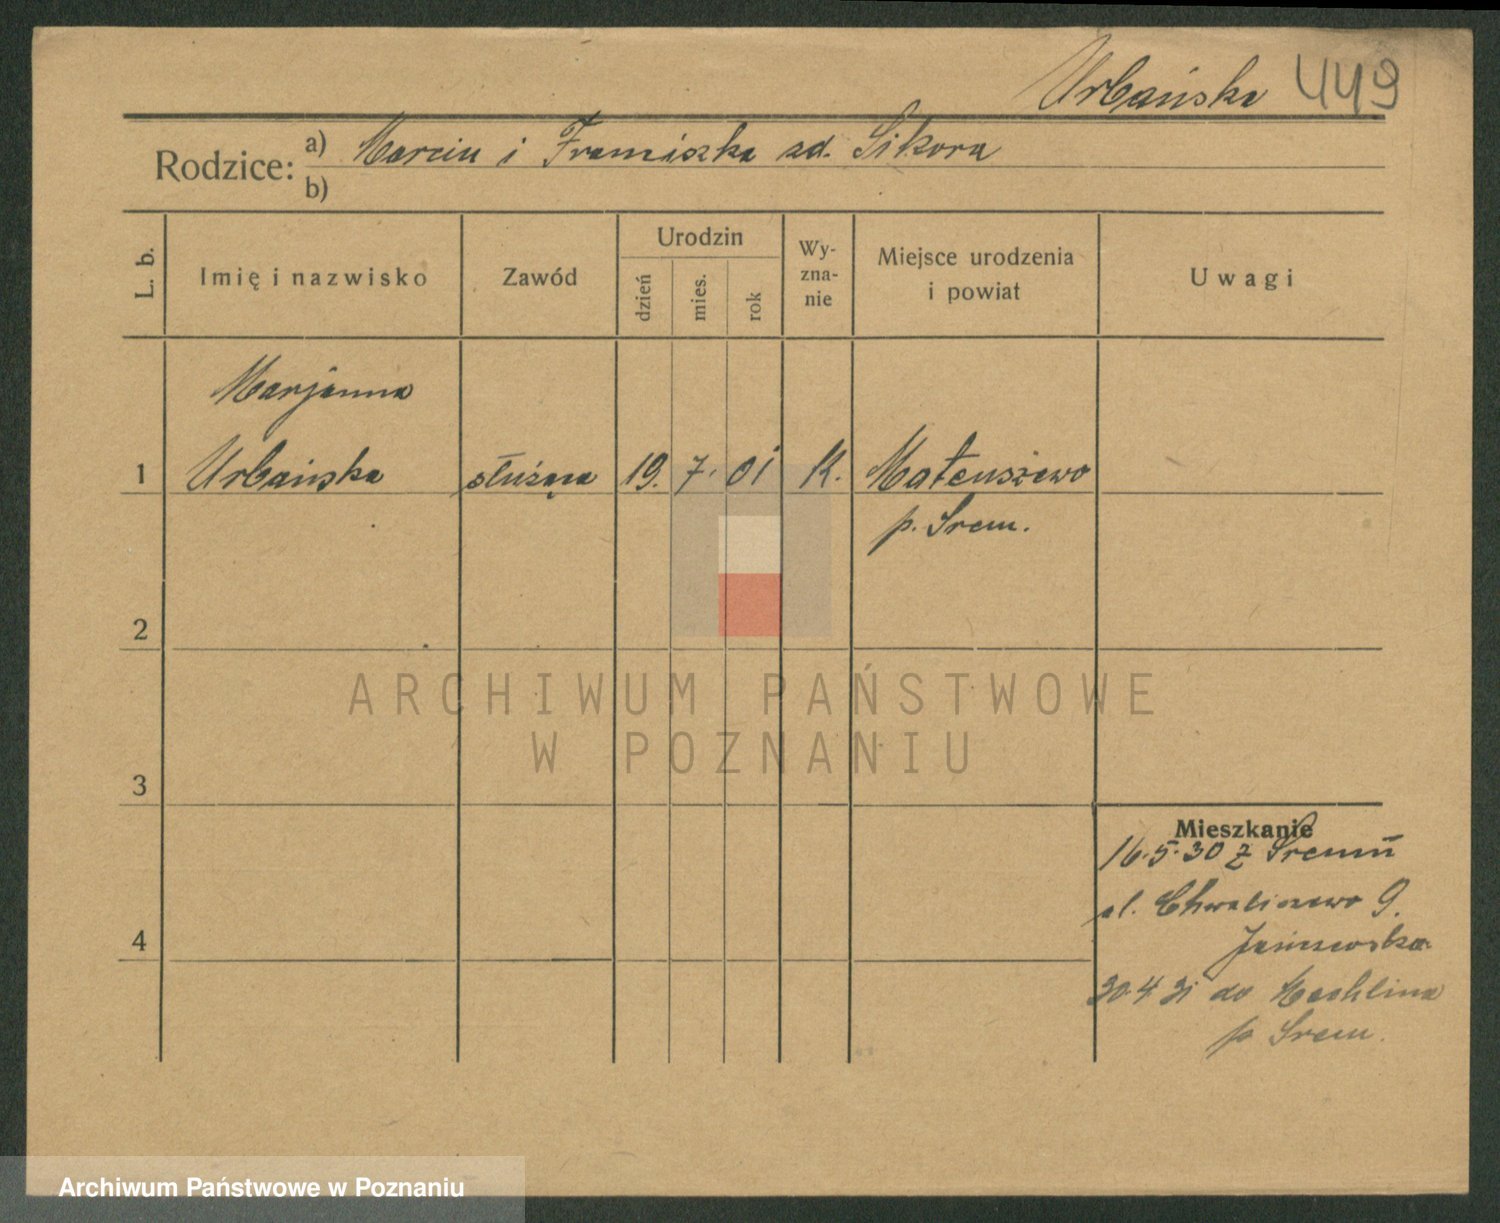 Urbańska 449
Rodzice: a) Marcin i Franciszka zd. Sikora
b)
L. b.
Imię i nazwisko
Zawód
Urodzin
dzień
mies.
rok
Wy-
zna-
nie
Miejsce urodzenia
i powiat
Uwagi
Marjanna
1 Urbańska służąca 19. 7. 01 K. Mateuszewo
p. Śrem.
2
ARCHIWUM PAŃSTWOWE
W POZNANIU
3
Mieszkanie
16.5.30 z Śremu
ul. Chwaliszewo 9.
4
30.4 31 do Mechlina
p Śrem.
Archiwum Państwowe w Poznaniu